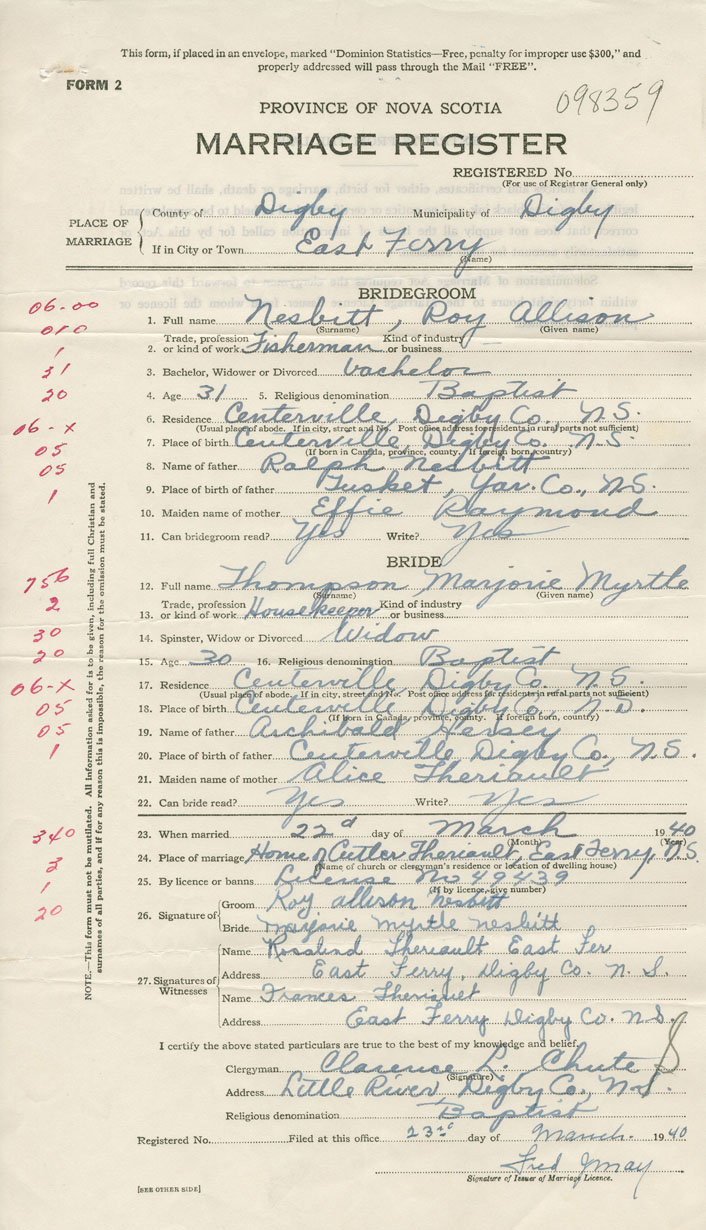 This form, if placed in an envelope, marked "Dominion Statistics—Free, penalty for improper use $300," and
properly addressed will pass through the Mail "FREE".
FORM 2
098359
PROVINCE OF NOVA SCOTIA
MARRIAGE REGISTER
REGISTERED No.
(For use of Registrar General only)
PLACE OF MARRIAGE
County of Digby Municipality of Digby
If in City or Town East Ferry
(Name)
BRIDEGROOM
06-00
1. Full name Nesbitt, Roy Allison
(Surname) (Given name)
010
2. Trade, profession or kind of work Fisherman Kind of industry or business
1
3. Bachelor, Widower or Divorced bachelor
31
4. Age 31 5. Religious denomination Baptist
20
6. Residence Centerville, Digby Co., N.S.
(Usual place of abode. If in city, street and No. Post office address for residents in rural parts not sufficient)
06-X
7. Place of birth Centerville, Digby Co. N.S.
(If born in Canada, province, county. If foreign born, country)
05
8. Name of father Ralph Nesbitt
05
9. Place of birth of father Tusket, Yar. Co., N.S.
1
10. Maiden name of mother Effie Raymond
11. Can bridegroom read? Yes Write? Yes
BRIDE
756
12. Full name Thompson Marjorie Myrtle
(Surname) (Given name)
2
13. Trade, profession or kind of work Housekeeper Kind of industry or business
30
14. Spinster, Widow or Divorced Widow
20
15. Age 30 16. Religious denomination Baptist
06-X
17. Residence Centerville Digby Co. N.S.
(Usual place of abode. If in city, street and No. Post office address for residents in rural parts not sufficient)
05
18. Place of birth Centerville Digby Co. N.S.
(If born in Canada, province, county. If foreign born, country)
05
19. Name of father Archibald Hersey
1
20. Place of birth of father Centerville Digby Co., N.S.
21. Maiden name of mother Alice Theriault
22. Can bride read? Yes Write? Yes
340
23. When married 22d day of March 1940
(Month) (Year)
3
24. Place of marriage Home of Cutler Theriault, East Ferry, N.S.
(Name of church or clergyman's residence or location of dwelling house)
1
25. By licence or banns License No 49439
(If by licence, give number)
20
26. Signature of
Groom Roy allison nesbitt
Bride marjorie myrtle nesbitt
27. Signatures of Witnesses
Name Rosalind Theriault East Fer
Address East Ferry, Digby Co. N.S.
Name Frances Theriault
Address East Ferry Digby Co. N.S.
I certify the above stated particulars are true to the best of my knowledge and belief.
Clergyman Clarence L. Chute
(Signature)
Address Little River Digby Co., N.S.
Religious denomination Baptist
Registered No. Filed at this office 23rd day of March 1940
Fred May
Signature of Issuer of Marriage Licence.
[SEE OTHER SIDE]
NOTE.—This form must not be mutilated. All information asked for is to be given, including full Christian and
surnames of all parties, and if for any reason this is impossible, the reason for the omission must be stated.